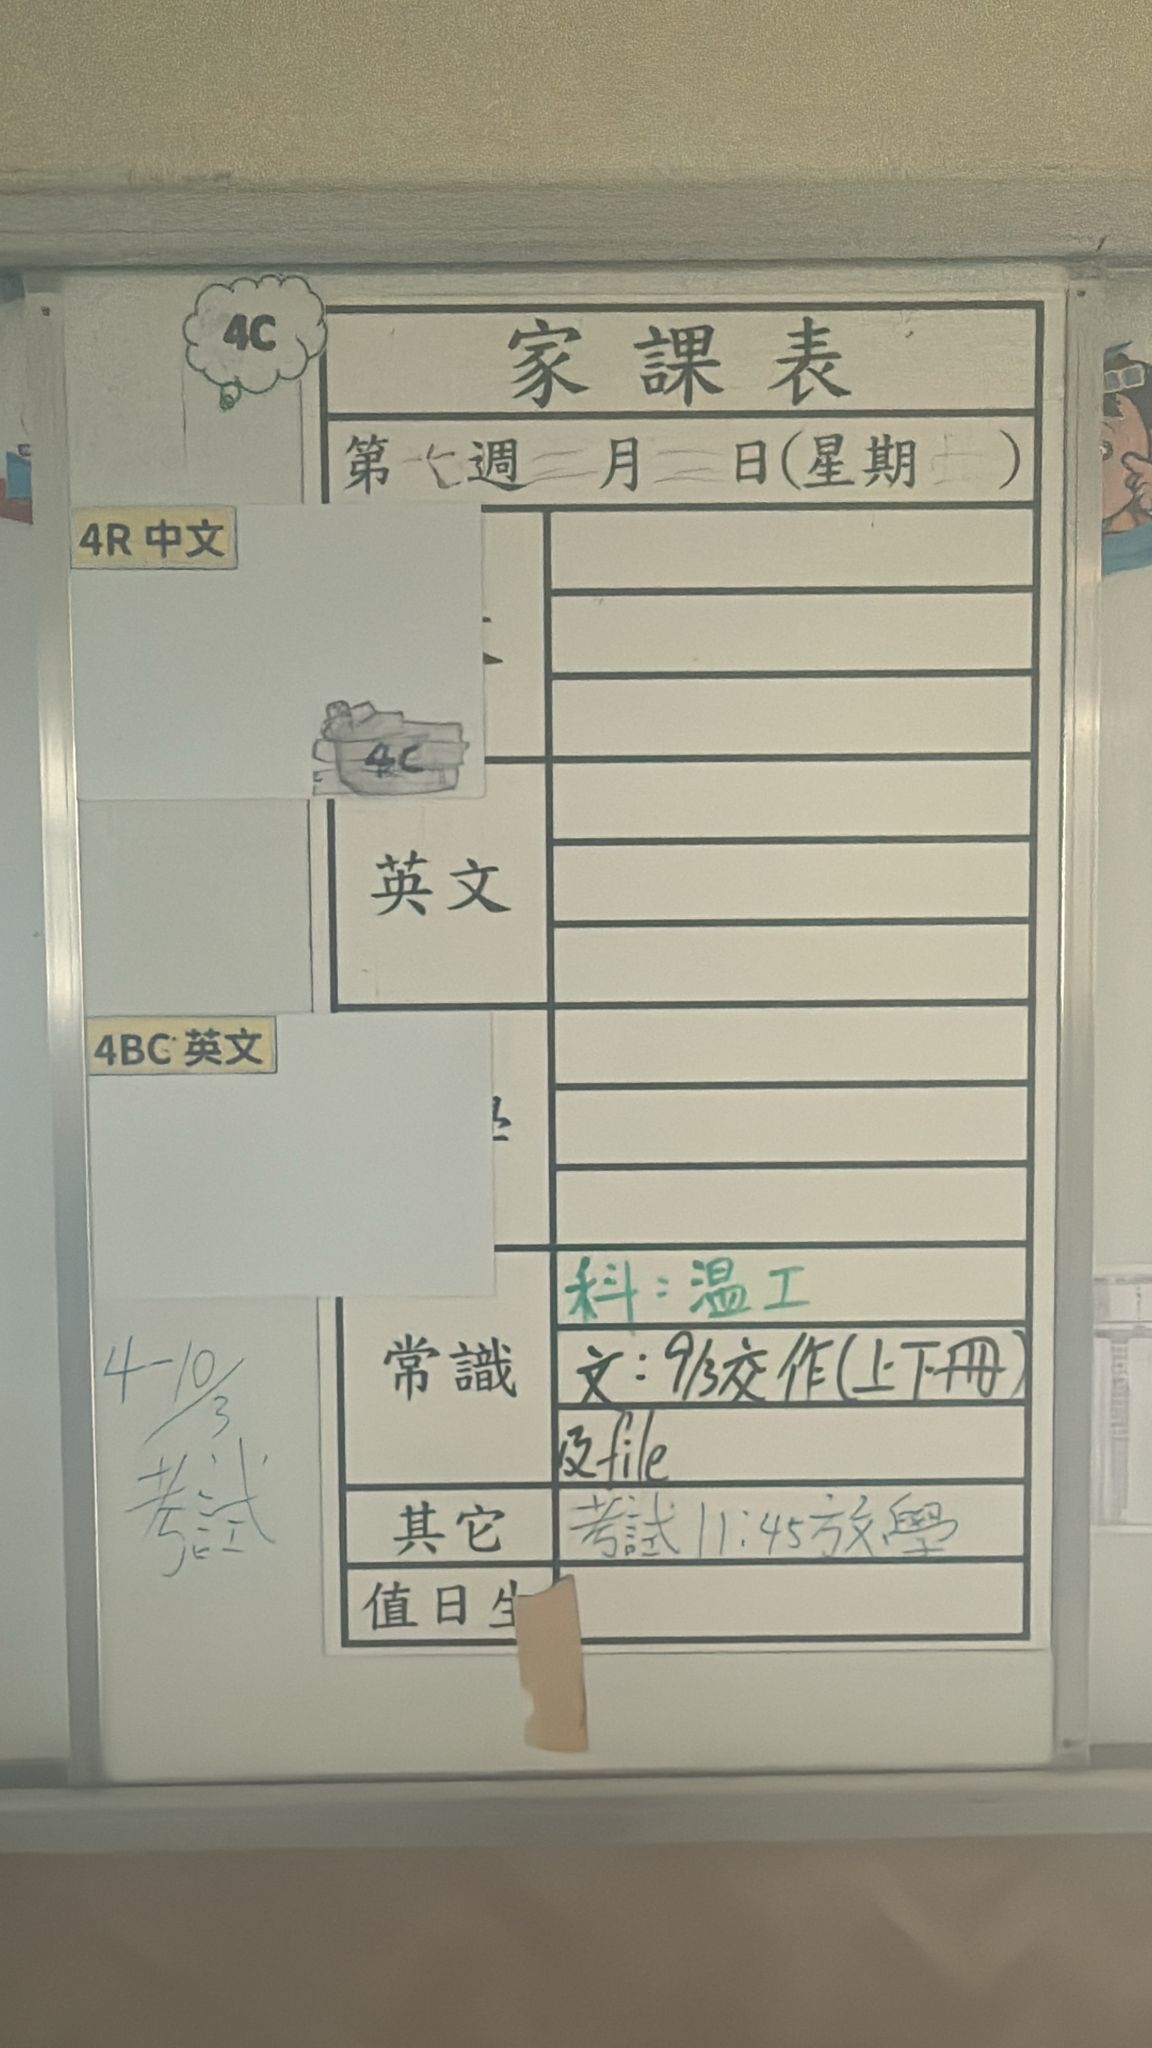 4C
家課表
第七週三月三日(星期二)
4R 中文
4C
英文
4BC 英文
常識
科：温工
文：9/3交作(上下冊)
及file
4-10/3
考試
其它
考試11:45放學
值日生